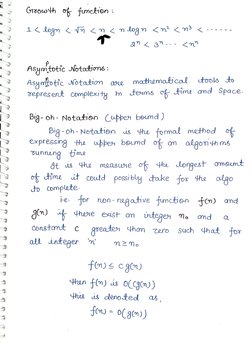 Growth of function :
1 < log n < √n < n < n log n < n² < n³ < ......
2ⁿ < 3ⁿ ... < nⁿ
Asymptotic Notations :
Asymptotic Notation are mathematical tools to
represent complexity in terms of time and space.
Big-oh-Notation (upper bound)
Big-oh-Notation is the formal method of
expressing the upper bound of an algorithms
running time
It is the measure of the longest amount
of time it could possibly take for the algo
to complete.
i.e. for non-negative function f(n) and
g(n) if there exist an integer n₀ and a
constant c greater than zero such that for
all integer 'n' n ≥ n₀
f(n) ≤ c g(n)
then f(n) is O(g(n))
this is denoted as,
f(n) = O(g(n))